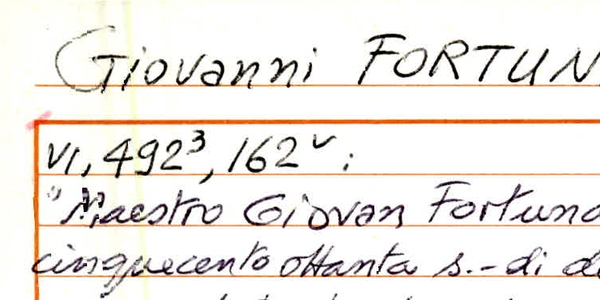 Giovanni FORTUN
VI, 492³, 162ᵛ:
"Maestro Giovan Fortuna
cinquecento ottanta s.- di d